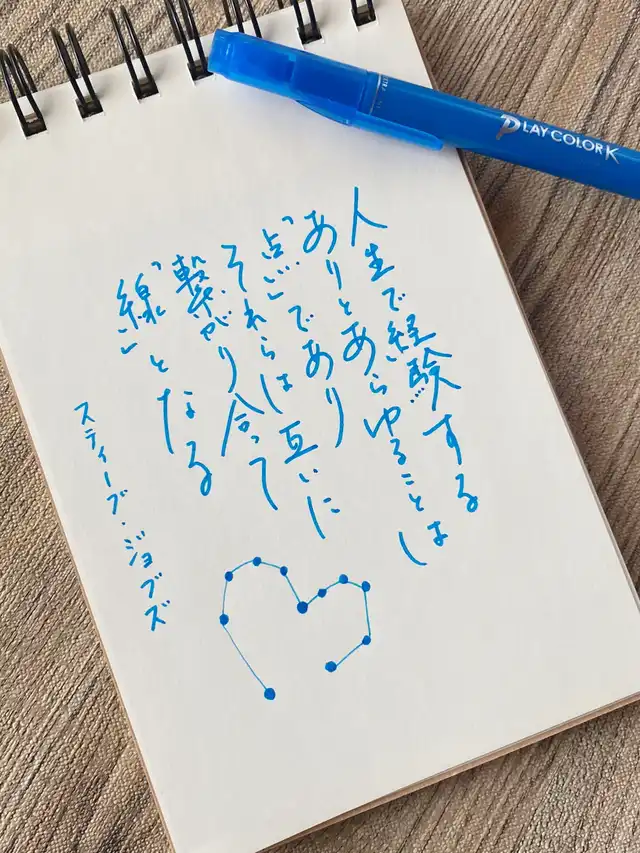 人生で経験する
ありとあらゆることは
「点」であり
それらは互いに
繋がり合って
「線」となる
スティーブ・ジョブズ
PLAY COLOR K